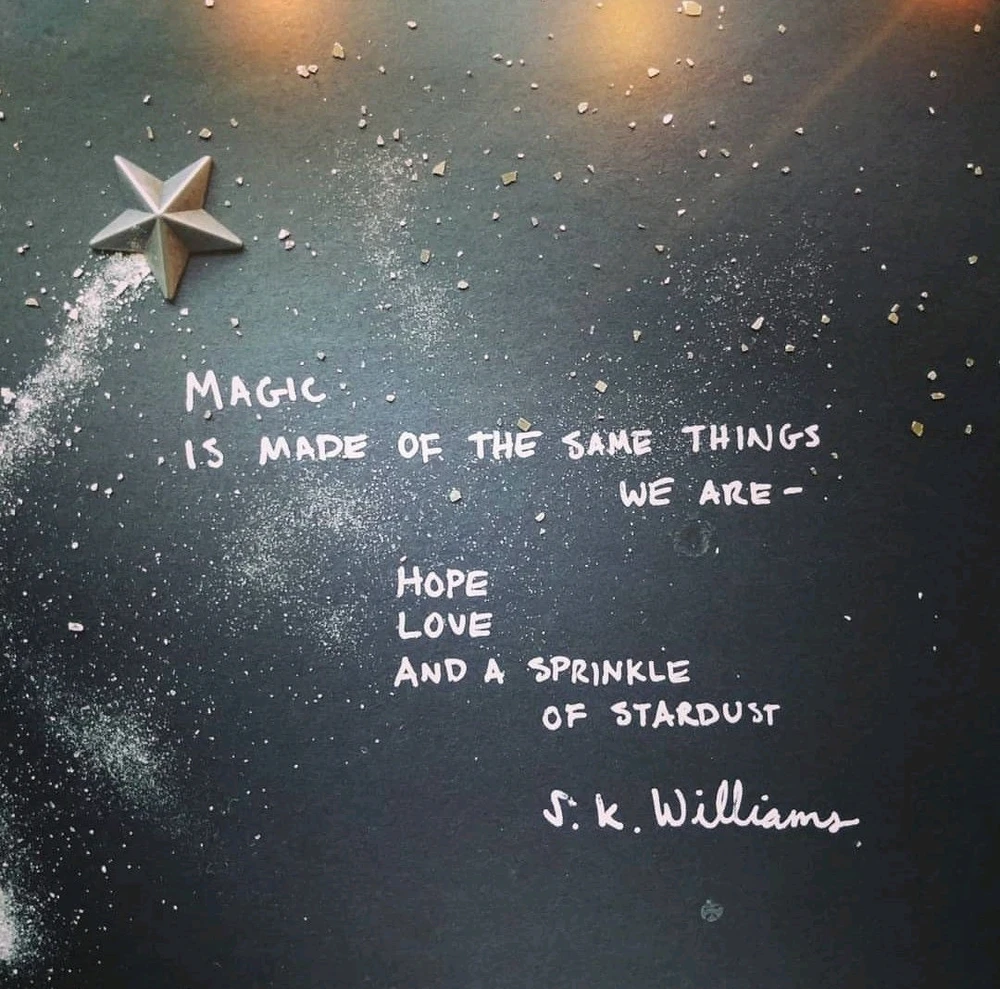 MAGIC
IS MADE OF THE SAME THINGS
WE ARE-
HOPE
LOVE
AND A SPRINKLE
OF STARDUST
S. K. Williams